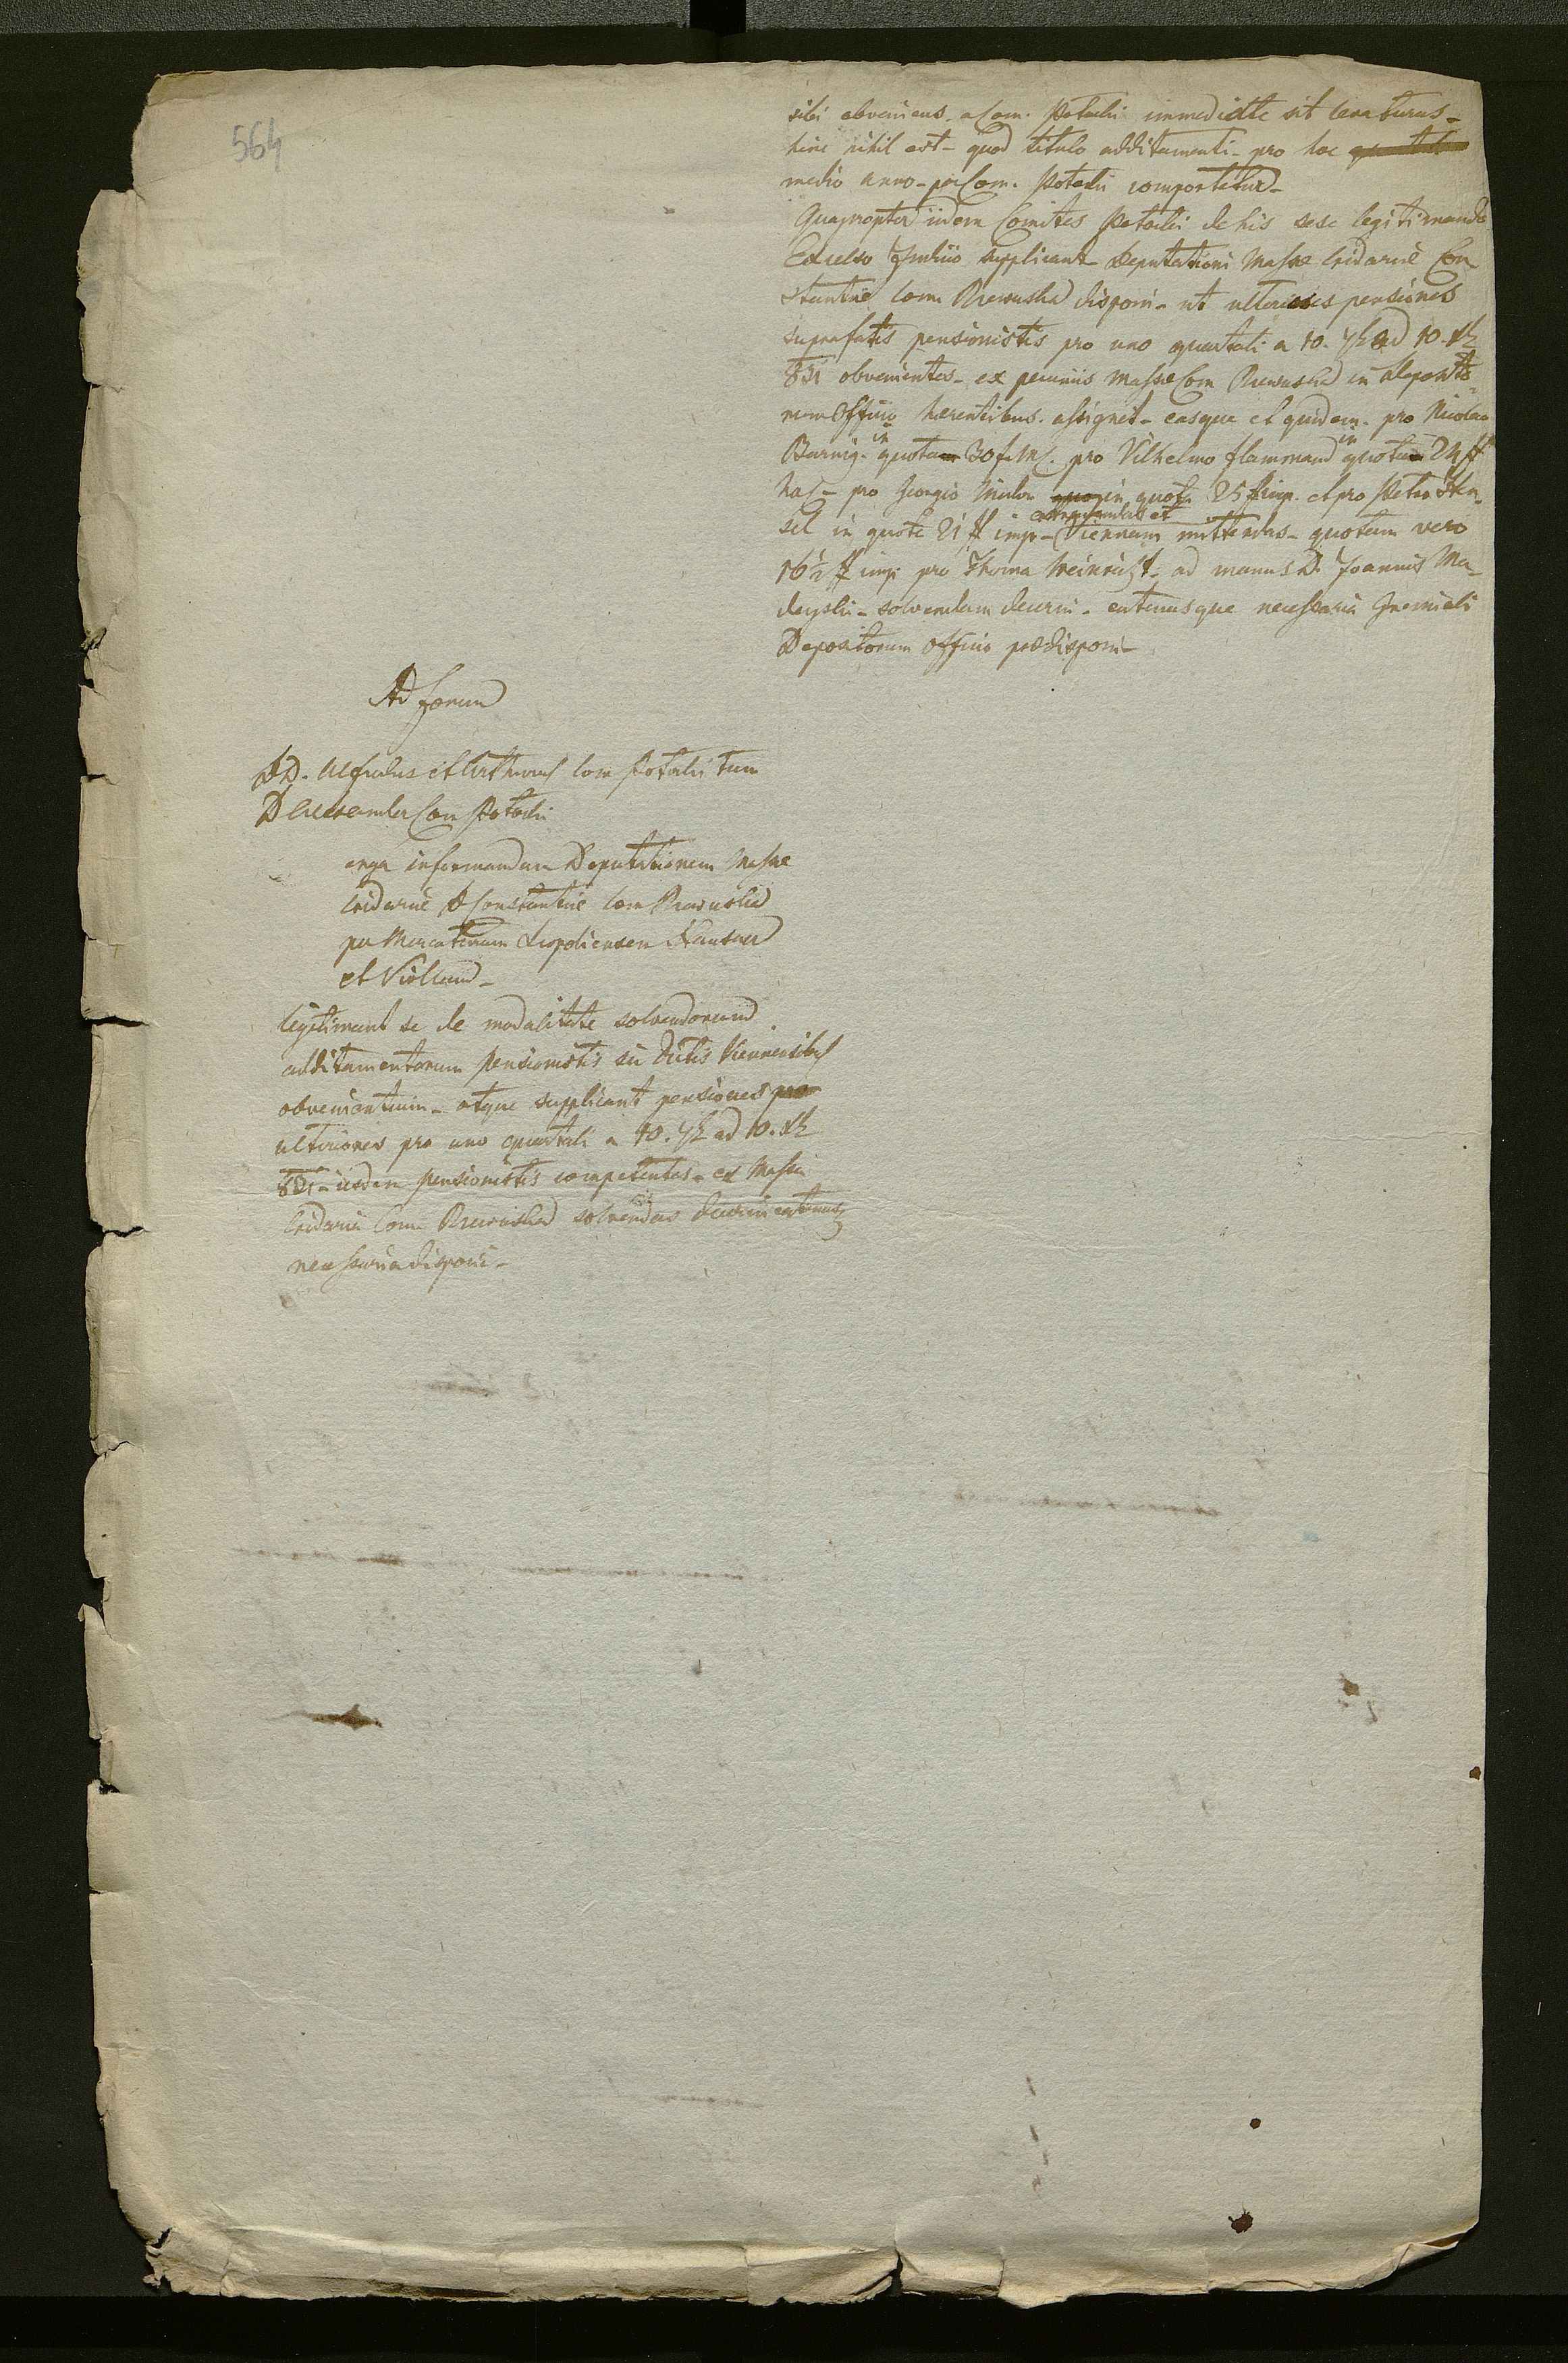 564
sibi obveniens - a Com. Potocki immediate sit levaturus -
hinc nihil est - quod titulo additamenti - pro hoc
medio anno - per Com. Potocki comportetur -
Quapropter iidem Comites Potocki de his sese legitimando
Excelso Judicio supplicant Deputationi Massae Cridariae Con
stantiae Com. Rzewuska disponi - ut ulteriores pensiones
suprafatis pensionistis pro uno quartali a 10. ad 10.
831 obvenientes - ex pecuniis Massae Com Rzewuska in deposito
rum Officio haerentibus. assignet - easque et quidem. pro Nicolao
in quota 30 f. pro Vilhelmo Flammand in quota 24 f
pro Georgio in quota 25 f imp. et pro Petro Hen
sel in quota 21 f imp - et Viennam mittendas - quotam vero
16 1/2 f imp pro Thoma ad manus D. Joannis Ma-
deyski - solvendam decerni - eatenusque necessaria Gremiali
Depositorum Officio praedisponi -
Ad forum
DD. Alfredus et Arthurus Com Potocki tum
D Alexander Com Potocki
erga informandam Deputationem Massae
Cridariae D Constantiae Com Rzewuska
per Mercatorem Leopoliensem Hausner
et Violland -
legitimant se de modalitate solvendorum
additamentorum pensionistis sic dictis Viennensibus
obvenientium - atque supplicant pensiones pro
ulteriores pro uno quartali a 10. ad 10.
831 - iisdem pensionistis competentes - ex Massa
Cridaria Com Rzewuska solvendas decerni eatenusq
necessaria disponi -